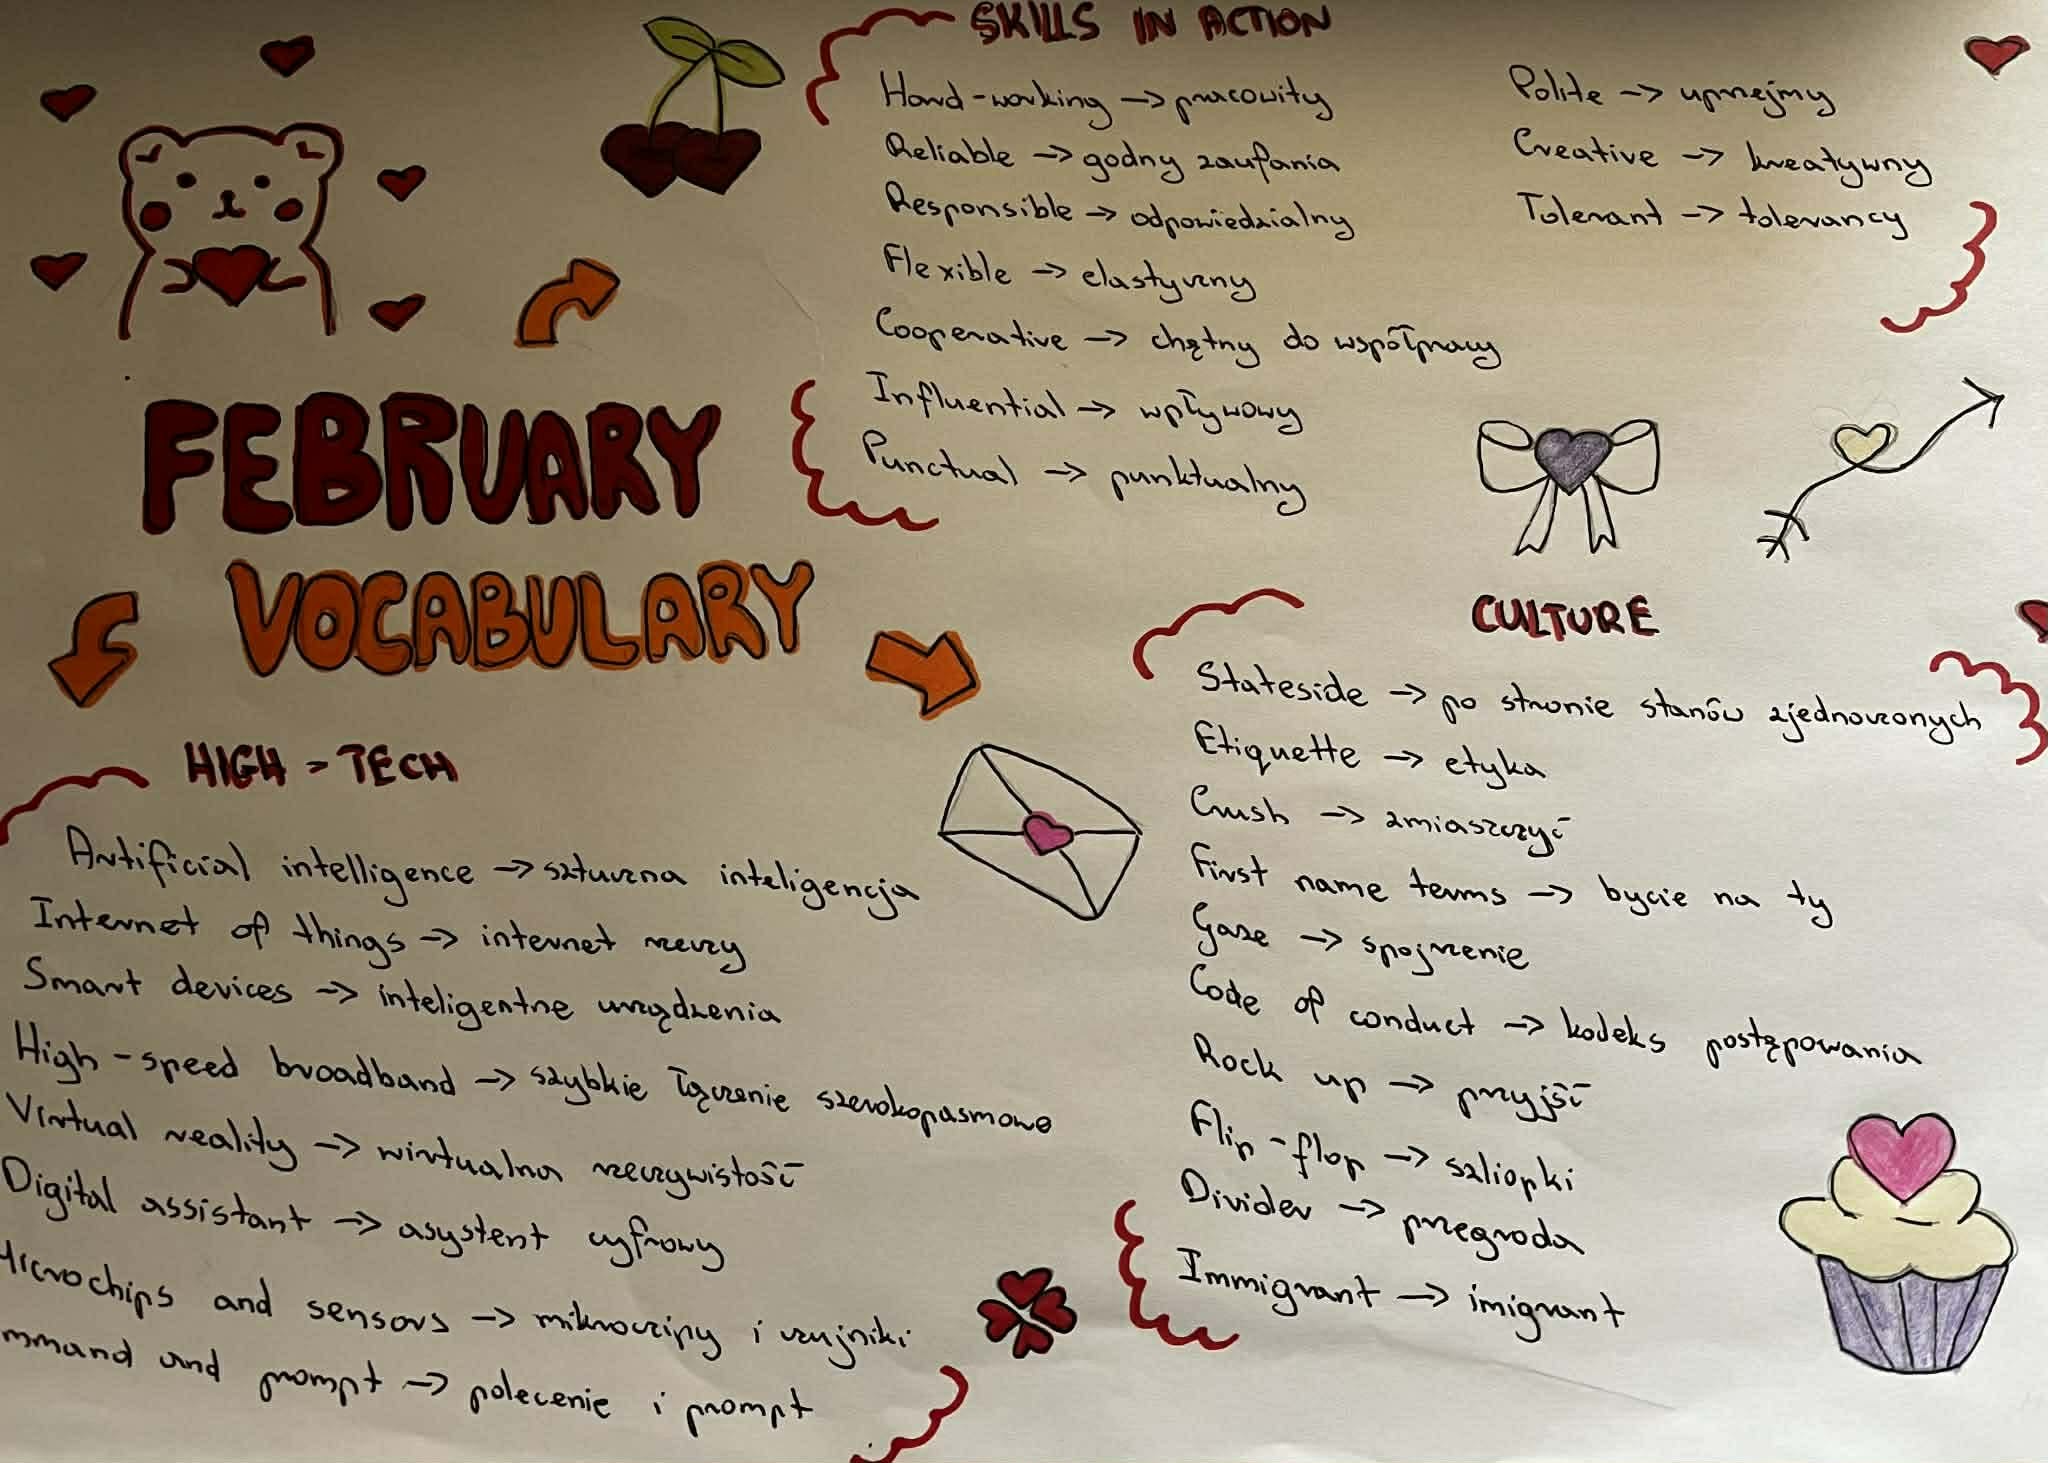 FEBRUARY
VOCABULARY
SKILLS IN ACTION
Hard-working -> pracowity
Reliable -> godny zaufania
Responsible -> odpowiedzialny
Flexible -> elastyczny
Cooperative -> chętny do współpracy
Influential -> wpływowy
Punctual -> punktualny
Polite -> uprzejmy
Creative -> kreatywny
Tolerant -> tolerancy
HIGH-TECH
Artificial intelligence -> sztuczna inteligencja
Internet of things -> internet rzeczy
Smart devices -> inteligentne urządzenia
High-speed broadband -> szybkie łączenie szerokopasmowe
Virtual reality -> wirtualna rzeczywistość
Digital assistant -> asystent cyfrowy
Microchips and sensors -> mikroczipy i czujniki
mmand and prompt -> polecenie i prompt
CULTURE
Stateside -> po stronie stanów zjednoczonych
Etiquette -> etyka
Crush -> zmiaszczyć
First name terms -> bycie na ty
Gaze -> spojrzenie
Code of conduct -> kodeks postępowania
Rock up -> przyjść
Flip-flop -> szliopki
Divider -> przegroda
Immigrant -> imigrant